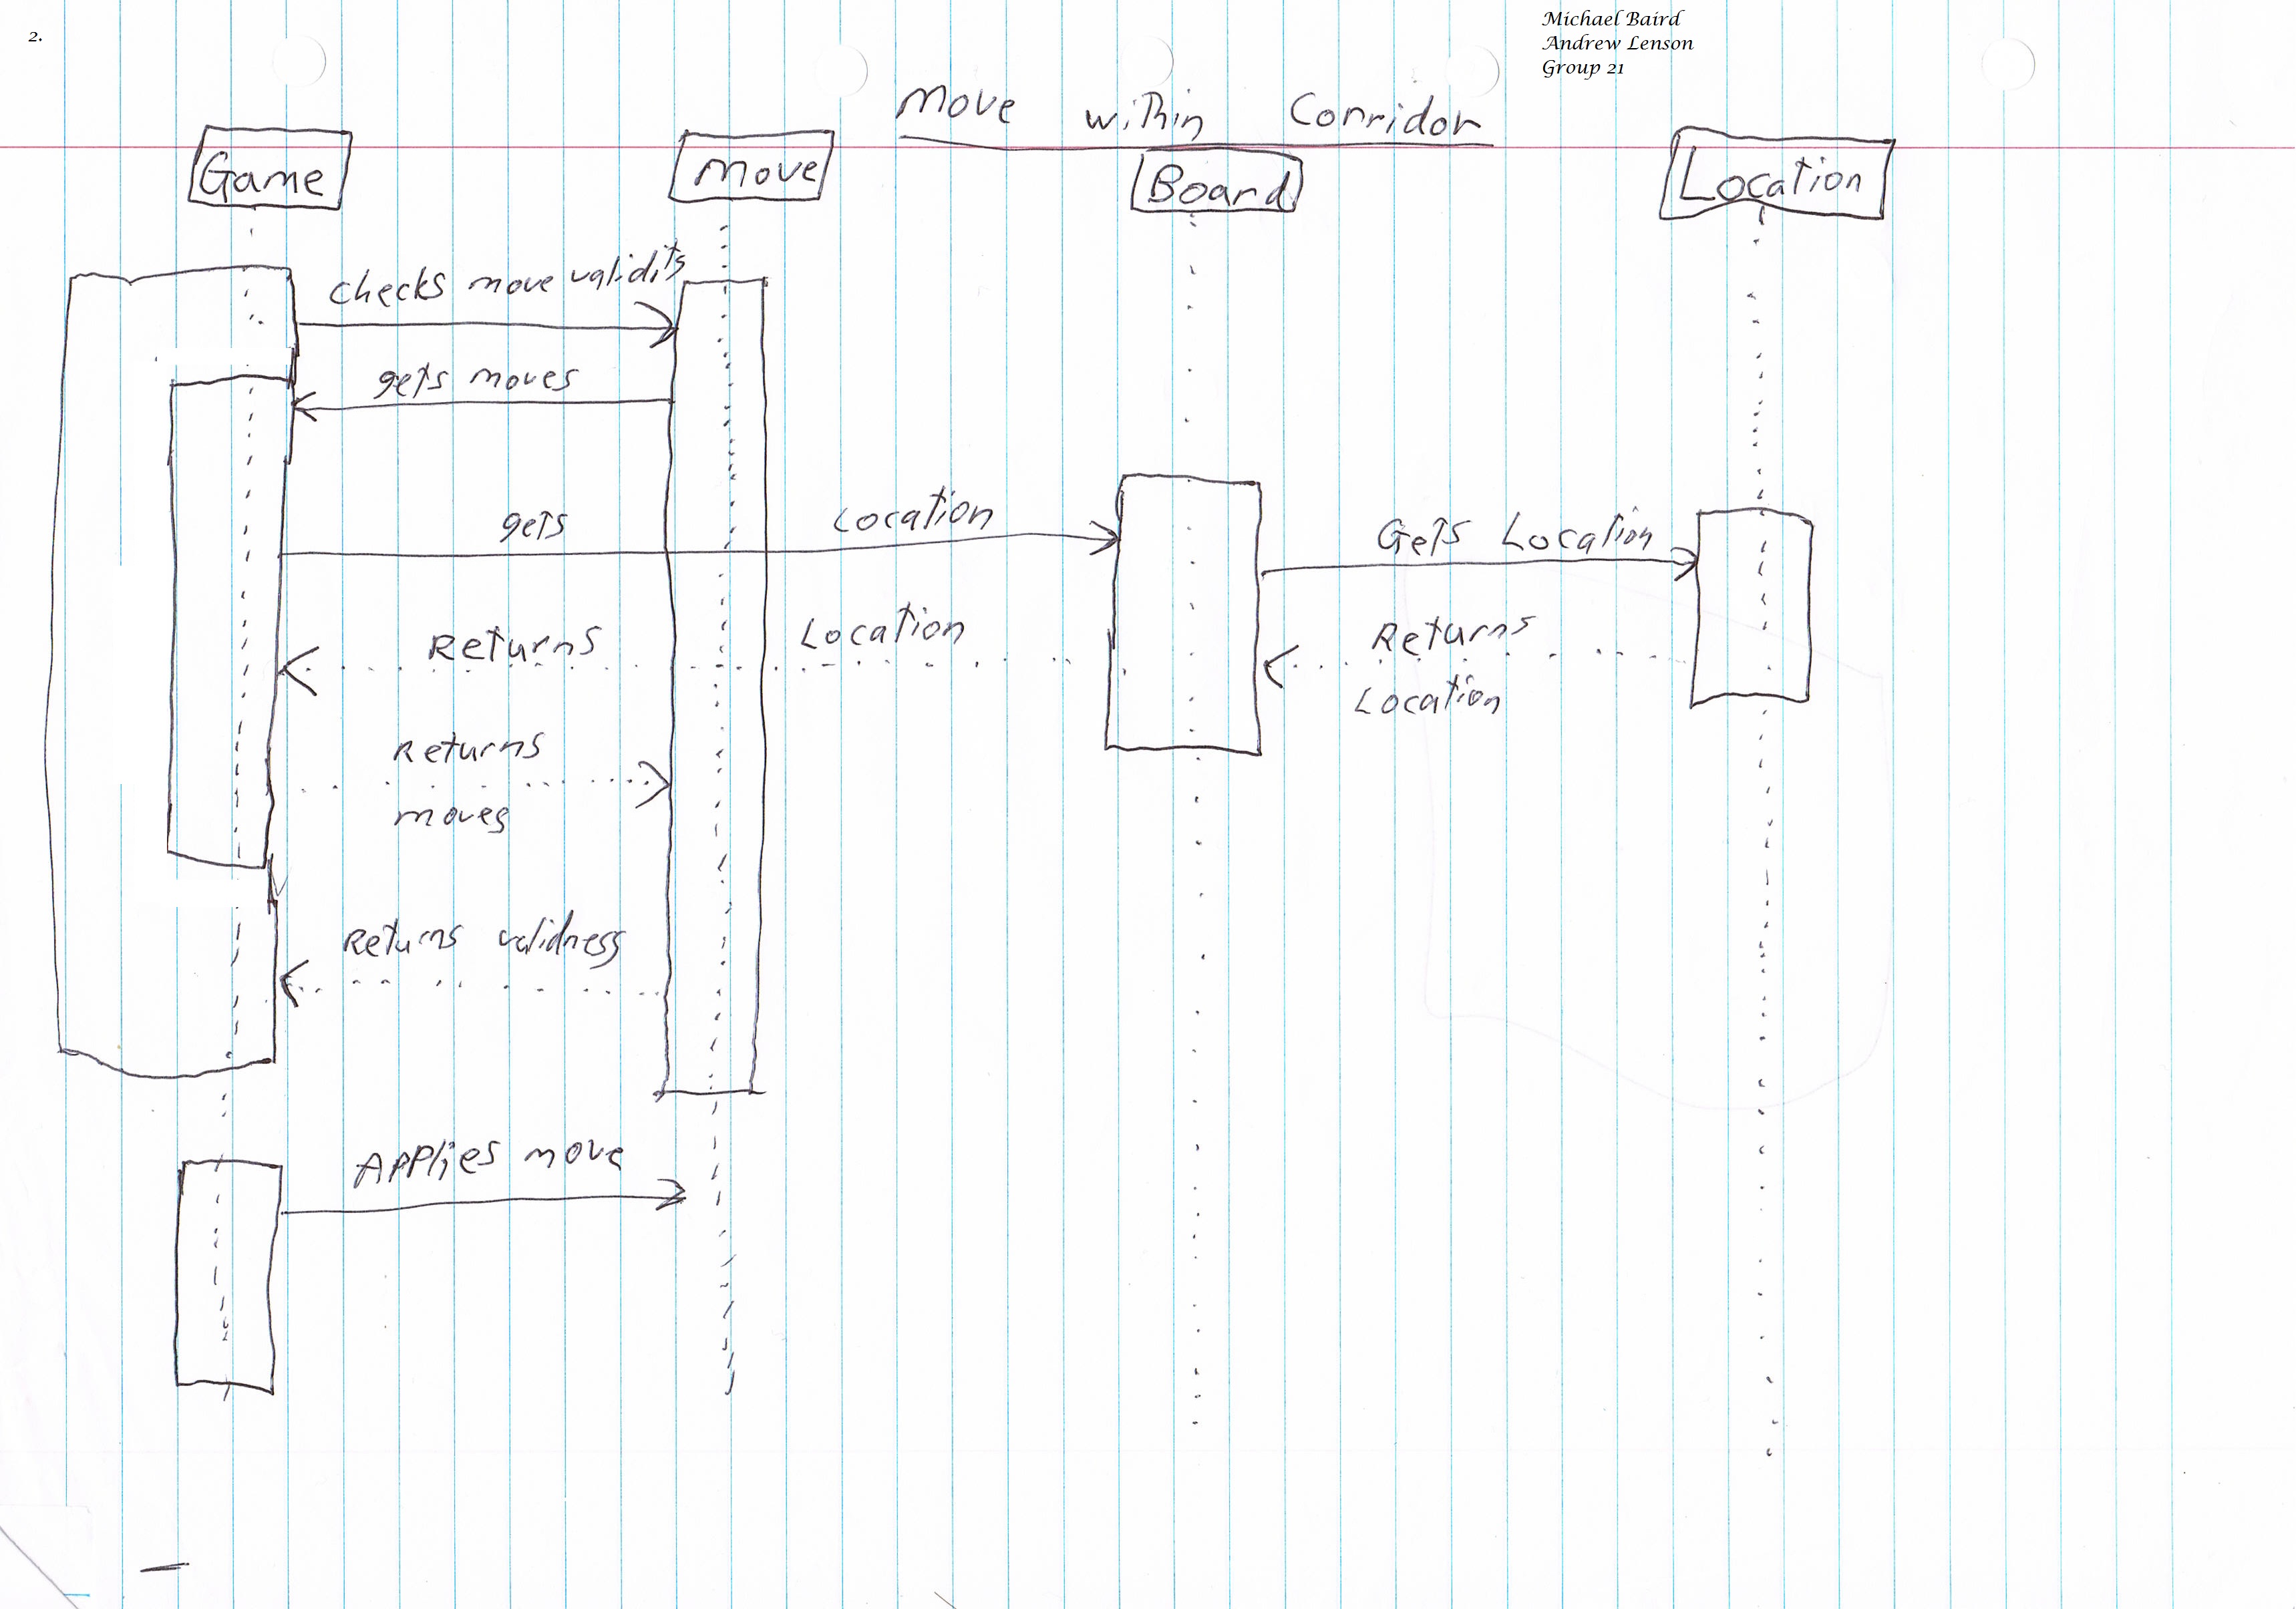 2.
Michael Baird
Andrew Lenson
Group 21
Move within Corridor
Game
Move
Board
Location
checks move validity
gets moves
gets Location
Gets Location
Returns Location
Returns
Location
Returns
moves
Returns validness
Applies move